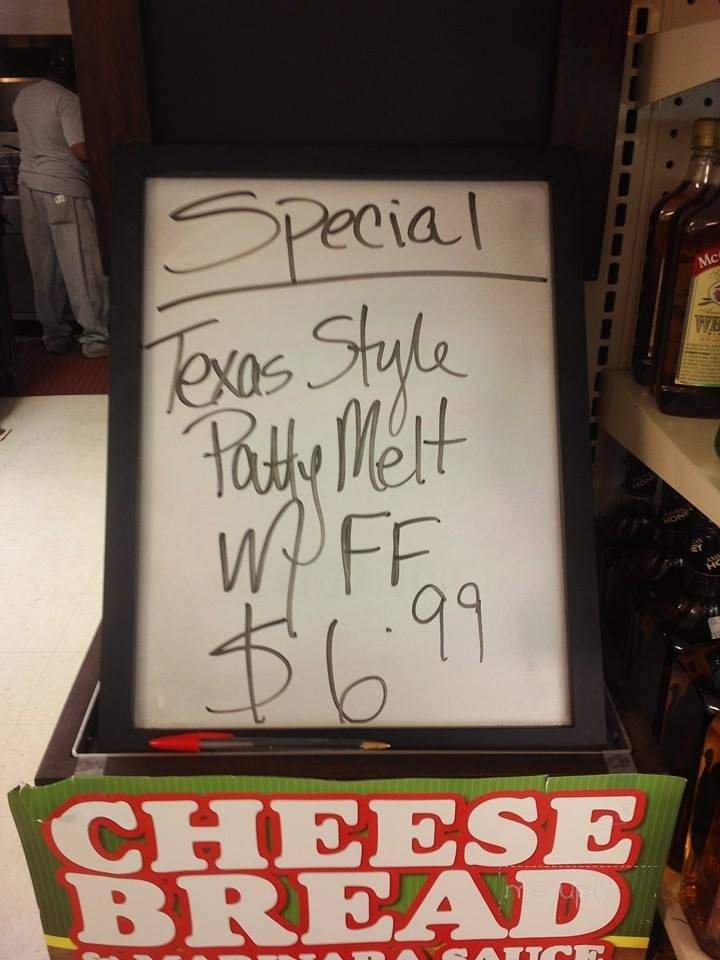 Special
Texas Style
Patty Melt
W/ FF
$6.99
CHEESE
BREAD
MARINARA SAUCE
Mc
HONEY